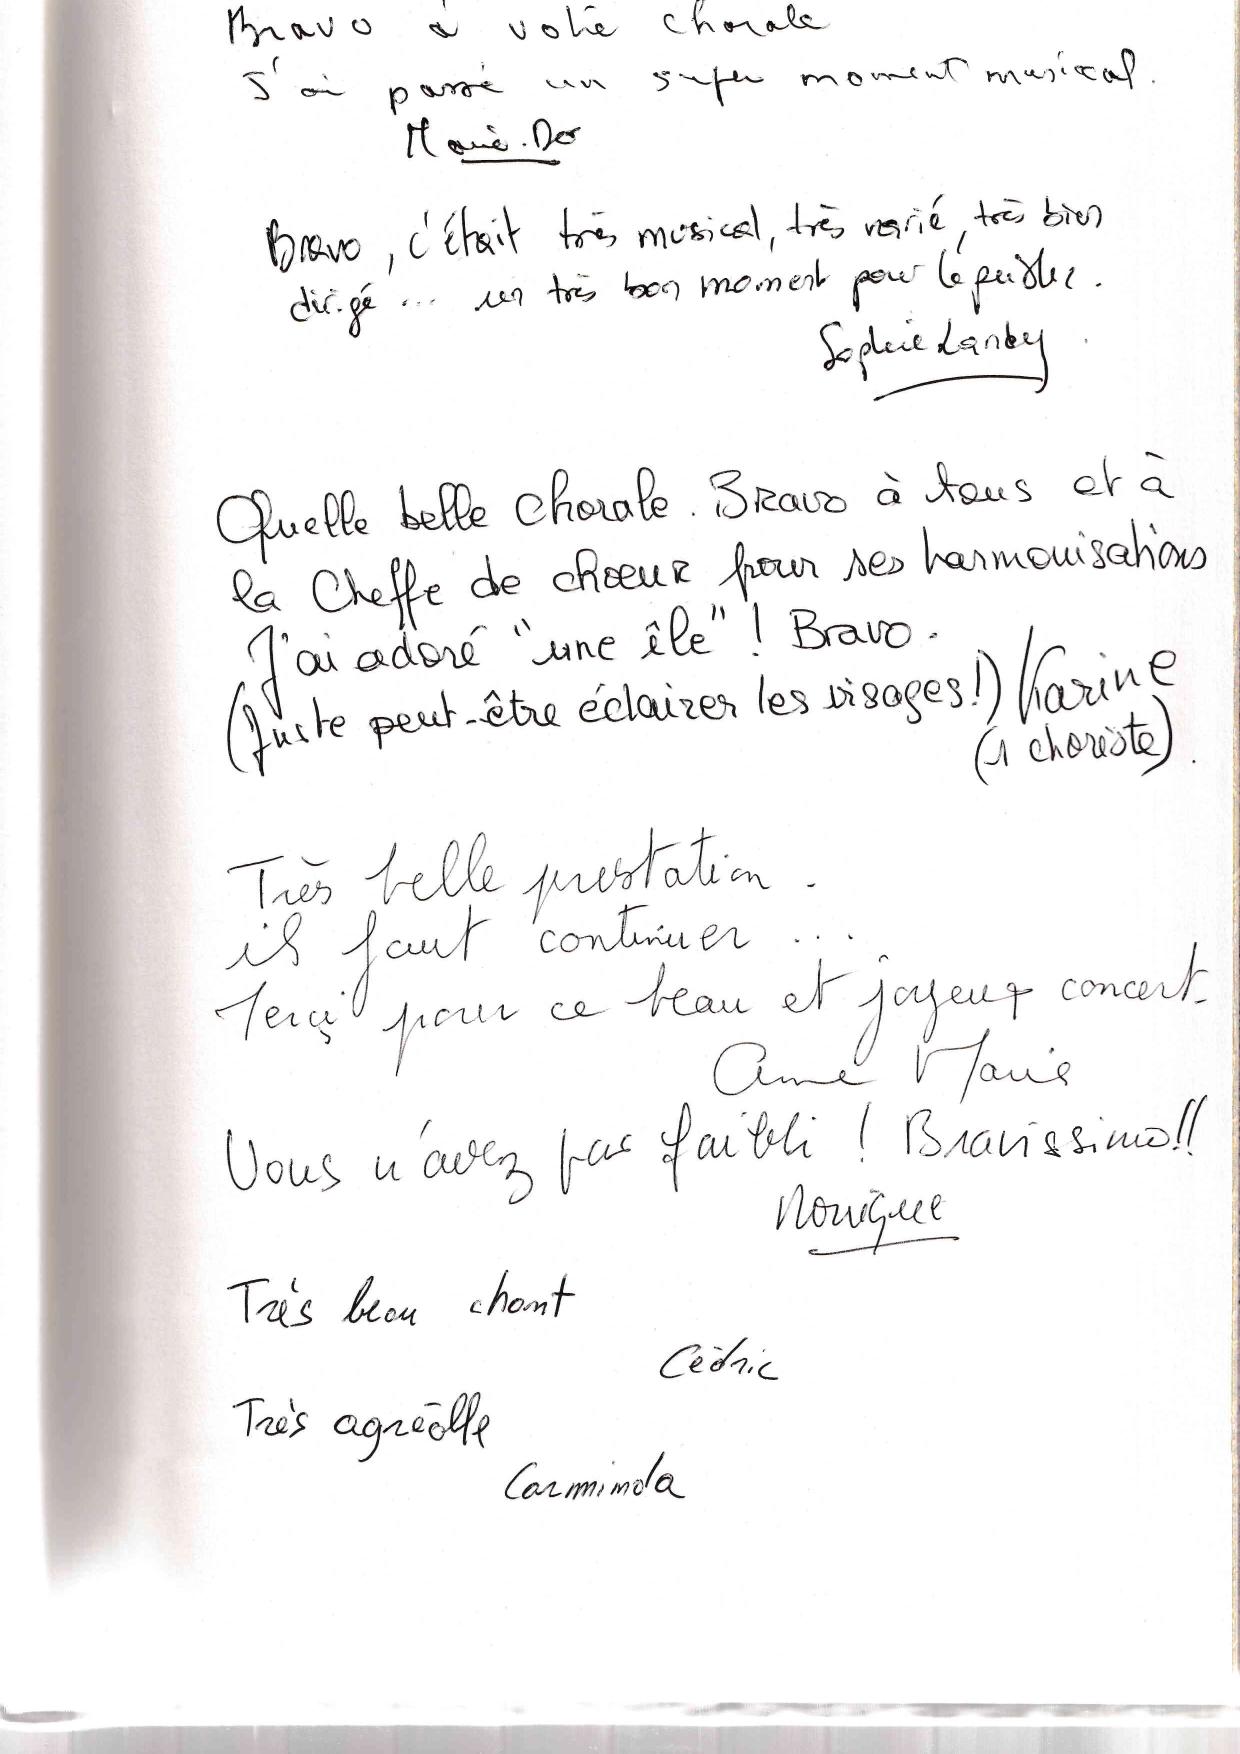 Bravo à votre chorale
J'ai passé un super moment musical.
Marie-Do
Bravo, c'était très musical, très varié, très bien
dirigé ... un très bon moment pour le public.
Sophie
Quelle belle chorale. Bravo à tous et à
la Cheffe de choeur pour ses harmonisations
J'ai adoré "une île" ! Bravo.
(Juste peut-être éclairer les visages!) Karine
(1 choriste).
Très belle prestation.
il faut continuer ...
Merci pour ce beau et joyeux concert.
Anne Marie
Vous n'avez pas faibli ! Bravissimo!!
Monique
Très beau chant
Cédric
Très agréable
Carminda